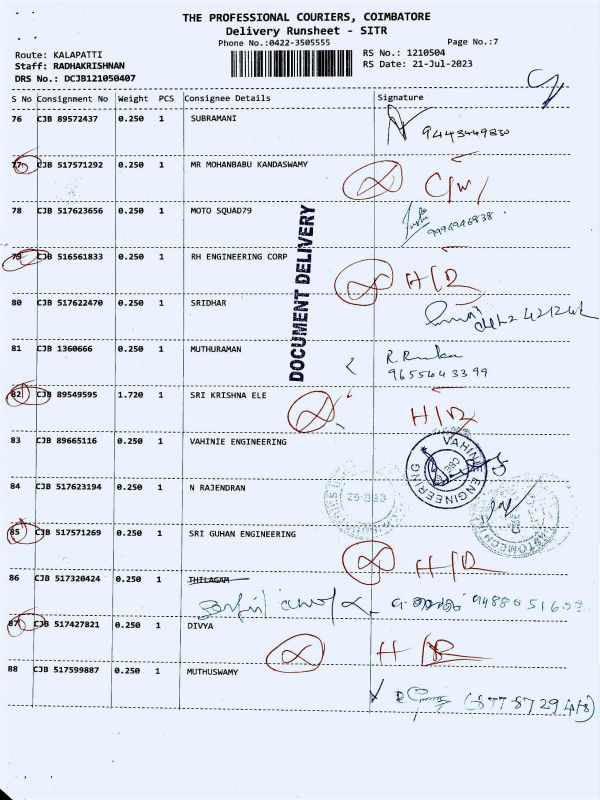 THE PROFESSIONAL COURIERS, COIMBATORE
Delivery Runsheet - SITR
Phone No.:0422-3505555
Page No.:7
Route: KALAPATTI
Staff: RADHAKRISHNAN
DRS No.: DCJB121050407
RS No.: 1210504
RS Date: 21-Jul-2023
S No Consignment No Weight PCS Consignee Details Signature
76 CJB 89572437 0.250 1 SUBRAMANI
9443449830
77 CJB 517571292 0.250 1 MR MOHANBABU KANDASWAMY
78 CJB 517623656 0.250 1 MOTO SQUAD79
79 CJB 516561833 0.250 1 RH ENGINEERING CORP
H/R
80 CJB 517622470 0.250 1 SRIDHAR
DOCUMENT DELIVERY
81 CJB 1360666 0.250 1 MUTHURAMAN
9655643399
82 CJB 89549595 1.720 1 SRI KRISHNA ELE
H/R
83 CJB 89665116 0.250 1 VAHINIE ENGINEERING
VAHINIE ENGINEERING
84 CJB 517623194 0.250 1 N RAJENDRAN
85 CJB 517571269 0.250 1 SRI GUHAN ENGINEERING
H/R
86 CJB 517320424 0.250 1 THILAGAM
87 CJB 517427821 0.250 1 DIVYA
H/R
88 CJB 517599887 0.250 1 MUTHUSWAMY